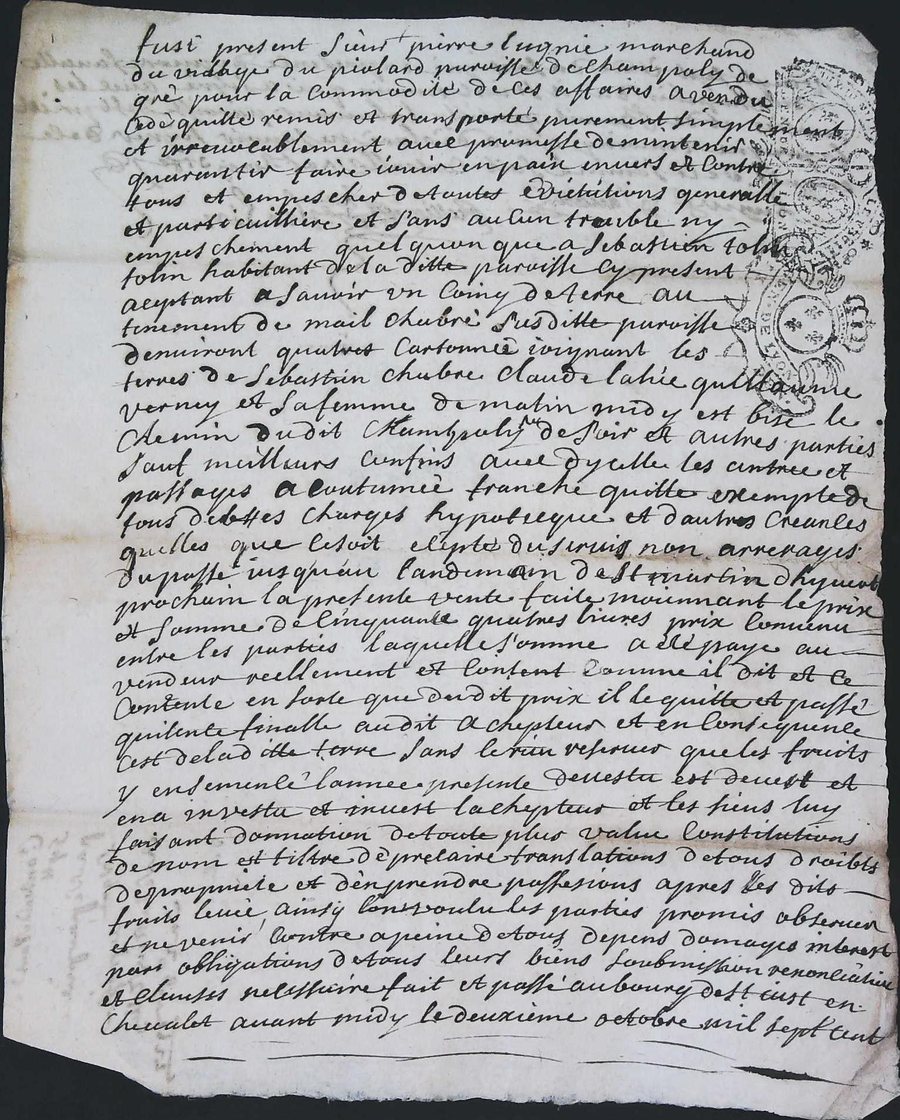 fust present sieur pierre lugnie marchand
du village du piolard paroisse de Champoly de
gré pour la Commodité de ces affaires a vendu
cédé quitté remis et transporté purement simplement
et irrevocablement avec promesse de mintenir
guarantir faire iouir en paix envers et Contre
tous et empescher de toutes generalle
et particulliere et sans aucun trouble ny
empeschement quelquon que a Sebastien tolin
tolin habitant de la ditte paroisse cy present
aceptant a sauoir un Coing de terre au
tenement de mail chabré susditte paroisse
denuiront quatres Cartonneé ioignant les
terres de Sebastien chabre Claude guillaume
verney et sa femme de matin midy est bise le
Chemin dudit Champoly de soir et autres parties
sauf meilleurs Confins avec dycelle les antree et
passages acoutumée franche quitte exempte de
tous debttes charges hypotecque et d'autres Creanses
quelles que ce soit du seruis non arrerages
du passé iusqu'au landemain de st martin dhyuert
prochain la presente vente faite moiennant le prix
et somme de Cinquante quatres liures prix Convenu
entre les parties laquelle somme a été payé au
vendeur reellement et Content Comme il dit et ce
Contente en sorte que dudit prix il le quitte et passé
quitente finalle audit achepteur et en Consequence
cest de la ditte terre sans le rien reseruer que les fruits
y ensemencé l'année presente devestu est devest et
en a investu et invest lachepteur et les siens luy
faisant donnation de toute plus value Constitutions
de nom et tiltre de precaire translations de tous droibts
de proprieté et d'en prendre possesions apres les dits
fruits leuée ainsy l'on voulu les parties promis obseruer
et ne venir Contre a peine de tous depens domages interest
par obligations de tous leurs biens soubmission renonciation
et Clauses nécessaire fait et passé au bourg de st iust en
Cheualet avant midy le deuxième octobre mil sept cent